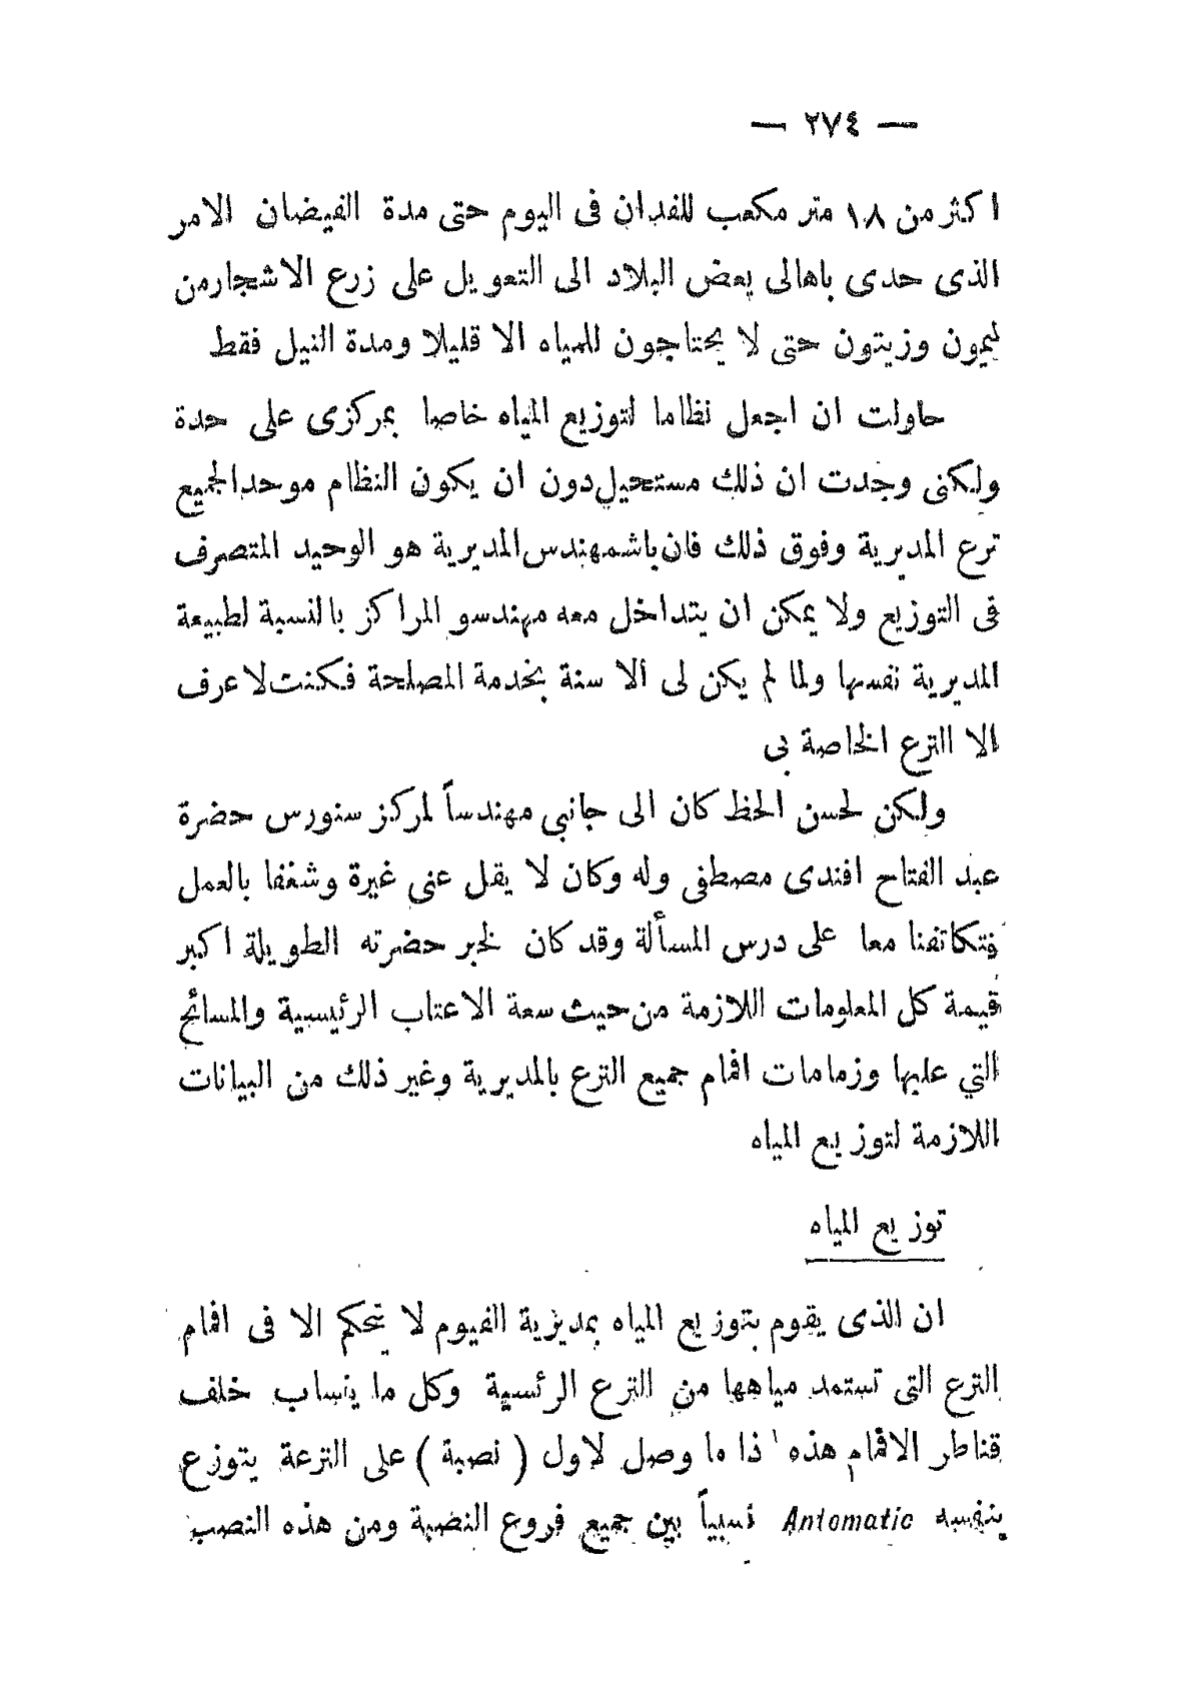 — ٢٧٤ —
اكثر من ١٨ متر مكعب للفدان فى اليوم حتى مدة الفيضان الامر
الذى حدى باهالى بعض البلاد الى التعويل على زرع الاشجار من
ليمون وزيتون حتى لا يحتاجون للمياه الا قليلا ومدة النيل فقط
حاولت ان اجعل نظاما لتوزيع المياه خاصا بمركزى على حدة
ولكنى وجدت ان ذلك مستحيل دون ان يكون النظام موحدا لجميع
ترع المديرية وفوق ذلك فان باشمهندس المديرية هو الوحيد المتصرف
فى التوزيع ولا يمكن ان يتداخل معه مهندسو المراكز بالنسبة لطبيعة
المديرية نفسها ولما لم يكن لى الا سنة بخدمة المصلحة فكنت لا عرف
الا الترع الخاصة بى
ولكن لحسن الحظ كان الى جانبي مهندساً لمركز سنورس حضرة
عبد الفتاح افندى مصطفى وله وكان لا يقل عنى غيرة وشغفا بالعمل
فتكاتفنا معا على درس المسألة وقد كان لخبر حضرته الطويلة اكبر
قيمة كل المعلومات اللازمة من حيث سعة الاعتاب الرئيسية والمسائح
التي عليها وزمامات افمام جميع الترع بالمديرية وغير ذلك من البيانات
اللازمة لتوزيع المياه
توزيع المياه
ان الذى يقوم بتوزيع المياه بمديرية الفيوم لا يتحكم الا فى افمام
الترع التى تستمد مياهها من الترع الرئسية وكل ما ينساب خلف
قناطر الافمام هذه ذا ما وصل لاول ( نصبة ) على الترعة يتوزع
بنفسه Antomatic نسبياً بين جميع فروع النصبة ومن هذه النصب